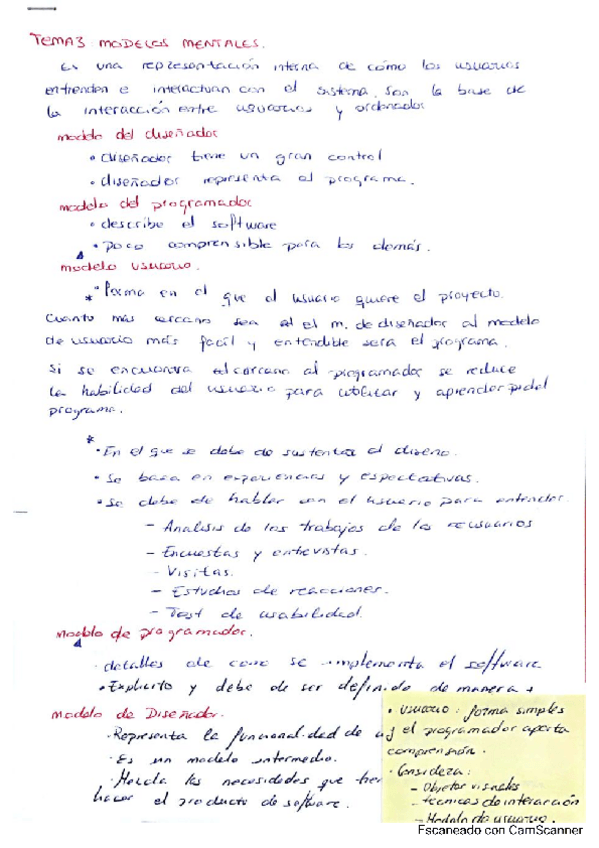 TEMA3: MODELOS MENTALES.
Es una representación interna de cómo los usuarios
entienden e interactuan con el sistema. son la base de
la interacción entre usuarios y ordenador
modelo del diseñador
• diseñador tiene un gran control
• diseñador representa el programa.
modelo del programador
• describe el software
• poco comprensible para los demás.
modelo usuario.
* Forma en el que el usuario quiere el proyecto.
Cuanto más cercano sea el m. de diseñador al modelo
de usuario más facil y entendible sera el programa.
Si se encuentra cercano al programador se reduce
la habilidad del usuario para utilizar y aprender del
programa.
*
• En el que se debe de sustentar el diseño.
• Se basa en experiencias y espectativas.
• Se debe de hablar con el usuario para entender.
– Analisis de los trabajos de los usuarios
– Encuestas y entrevistas.
– Visitas.
– Estudios de reacciones.
– Test de usabilidad.
modelo de programador.
· detalles de como se implementa el software
• Explicito y debe de ser definido de manera
modelo de Diseñador.
· Representa la funcionalidad de
· Es un modelo intermedio.
· Mezcla las necesidades que
hacer el producto de software.
• Usuario: forma simples
y el programador aporta
comprensión.
• Considera:
– Objetos visuales
– técnicas de interacción
– Modelo de usuario.
Escaneado con CamScanner